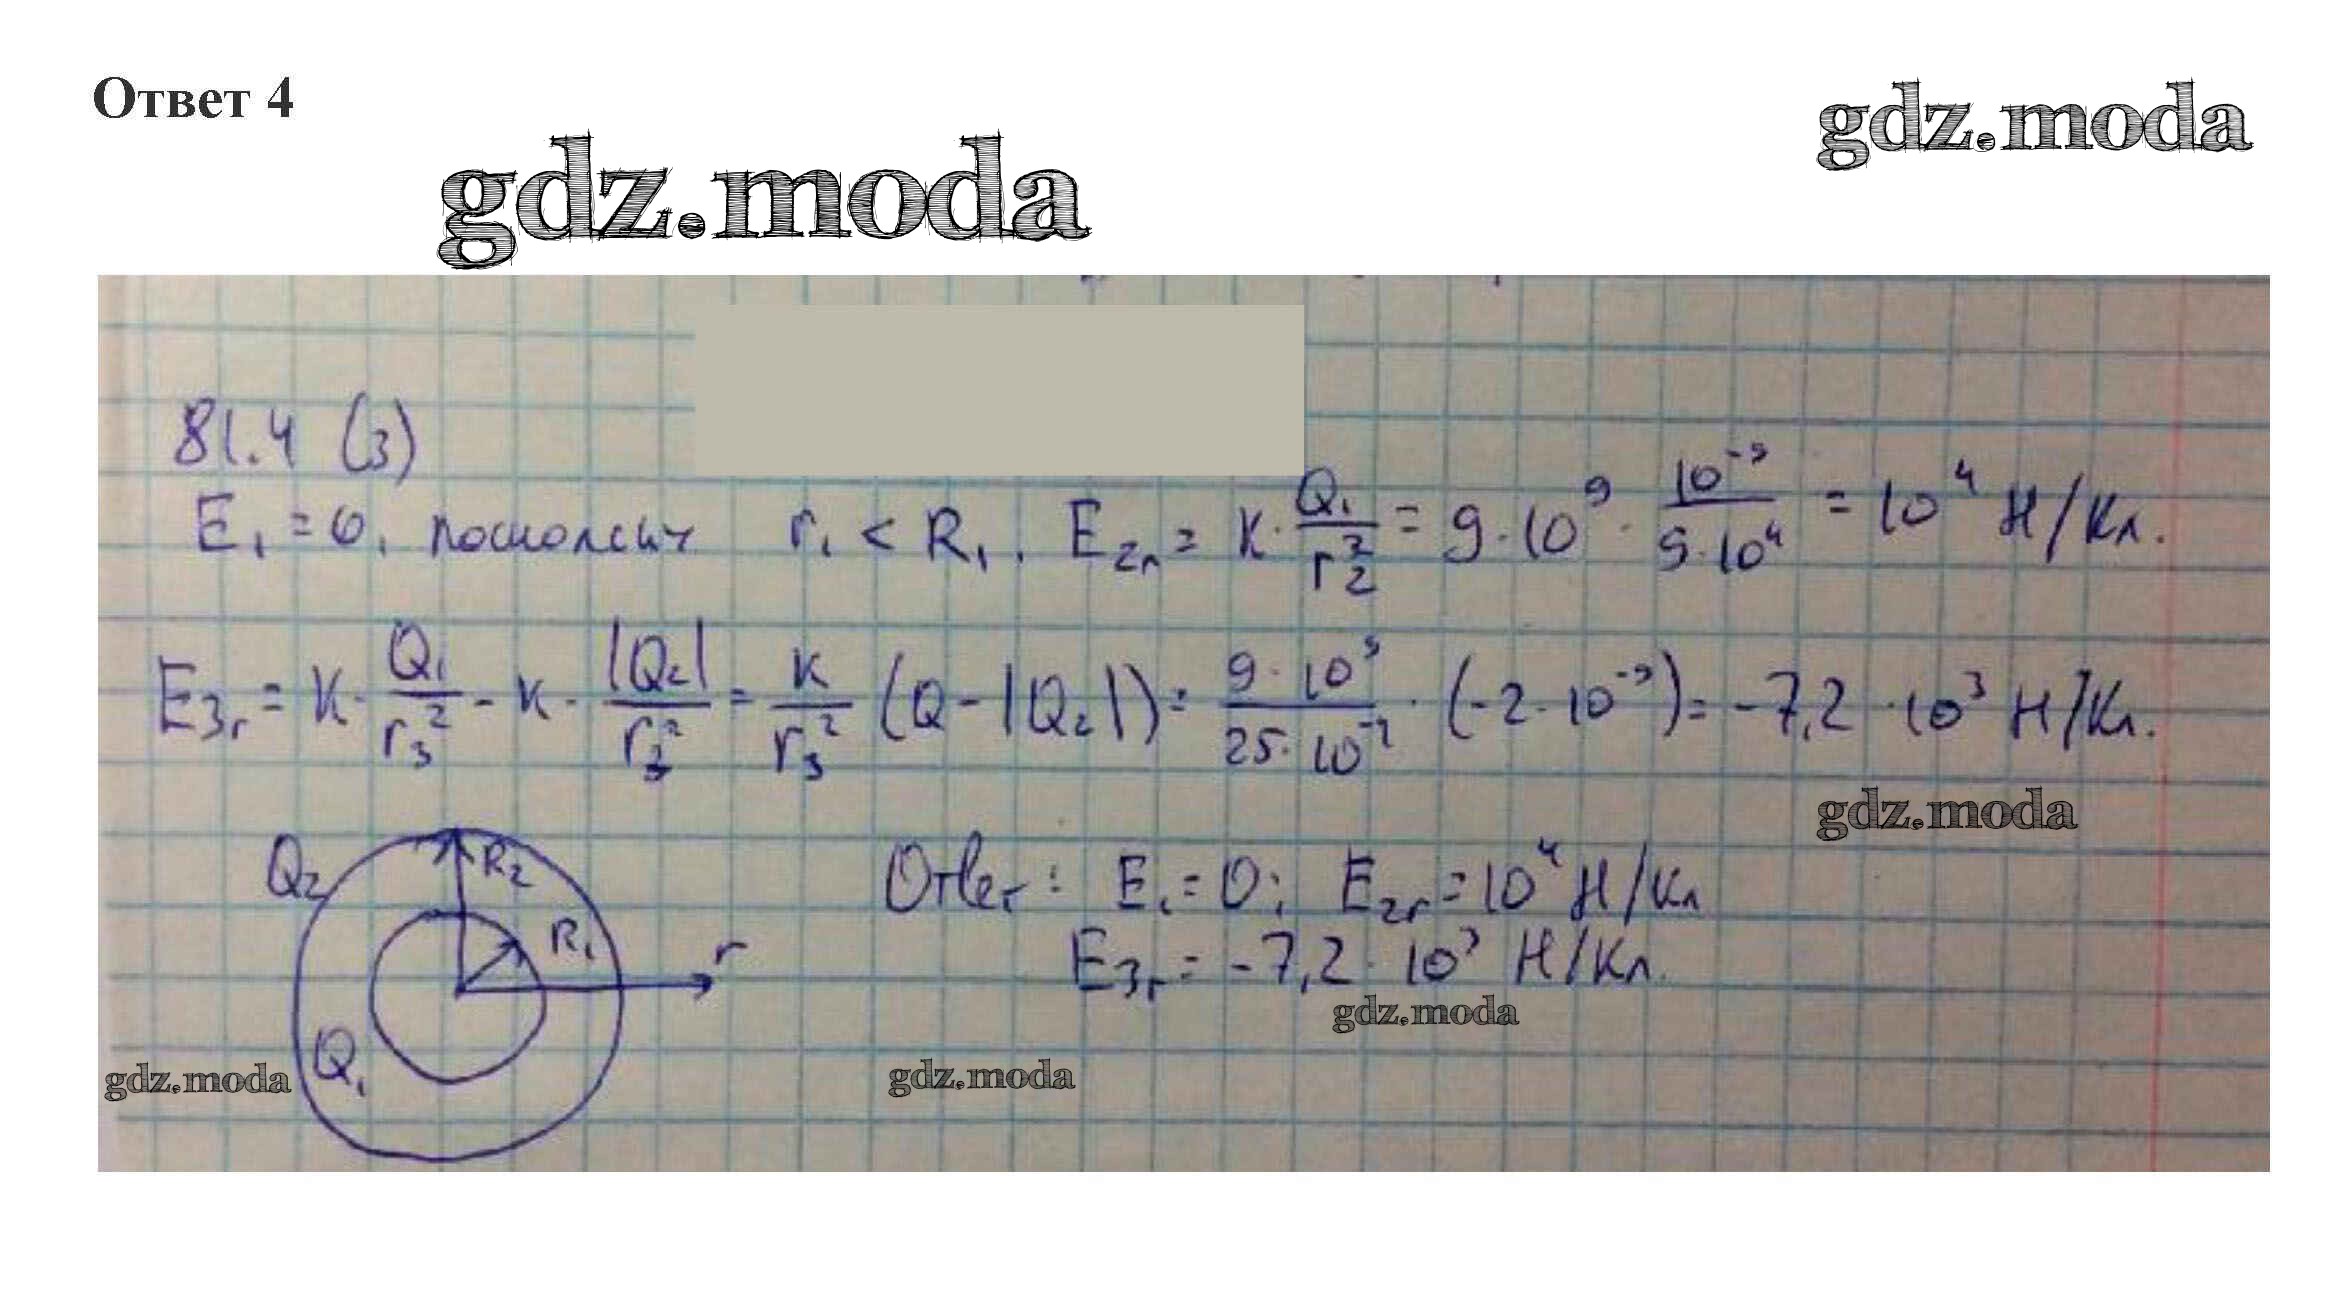 Ответ 4
gdz.moda
gdz.moda
81.4 (3)
E₁ = 0, r₁ < R₁. E₂ᵣ = к · Q₁/r₂² = 9·10⁹ · 10⁻⁹/9·10⁴ = 10⁴ Н/Кл.
E₃ᵣ = к · Q₁/r₃² - к · |Q₂|/r₃² = к/r₃² (Q - |Q₂|) = 9·10⁹/25·10⁻² · (-2·10⁻⁹) = -7,2 ·10³ Н/Кл.
gdz.moda
Q₂ R₂ R₁ r Q₁
Ответ: E₁ = 0; E₂ᵣ = 10⁴ Н/Кл
E₃ᵣ = -7,2 · 10³ Н/Кл.
gdz.moda
gdz.moda
gdz.moda